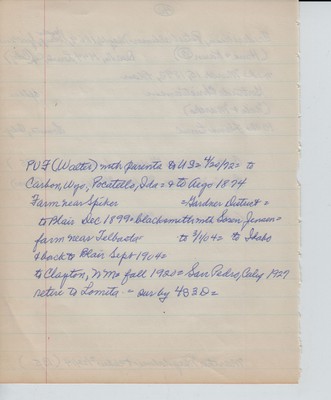 PVF (Walter) with parents to US = 4/20/72 = to
Carbon, Wyo, Pocatello, Ida = & to Argo 1874
Farm near Spiker = Gardner District =
to Blair Dec. 1899 = blacksmith with Soren Jensen =
farm near Telbasta to 4/04 = to Idaho
& back to Blair Sept 1904 =
to Clayton, N Mo fall 1920 = San Pedro, Caly 1927
retire to Lomita - sur by 4S 3D =